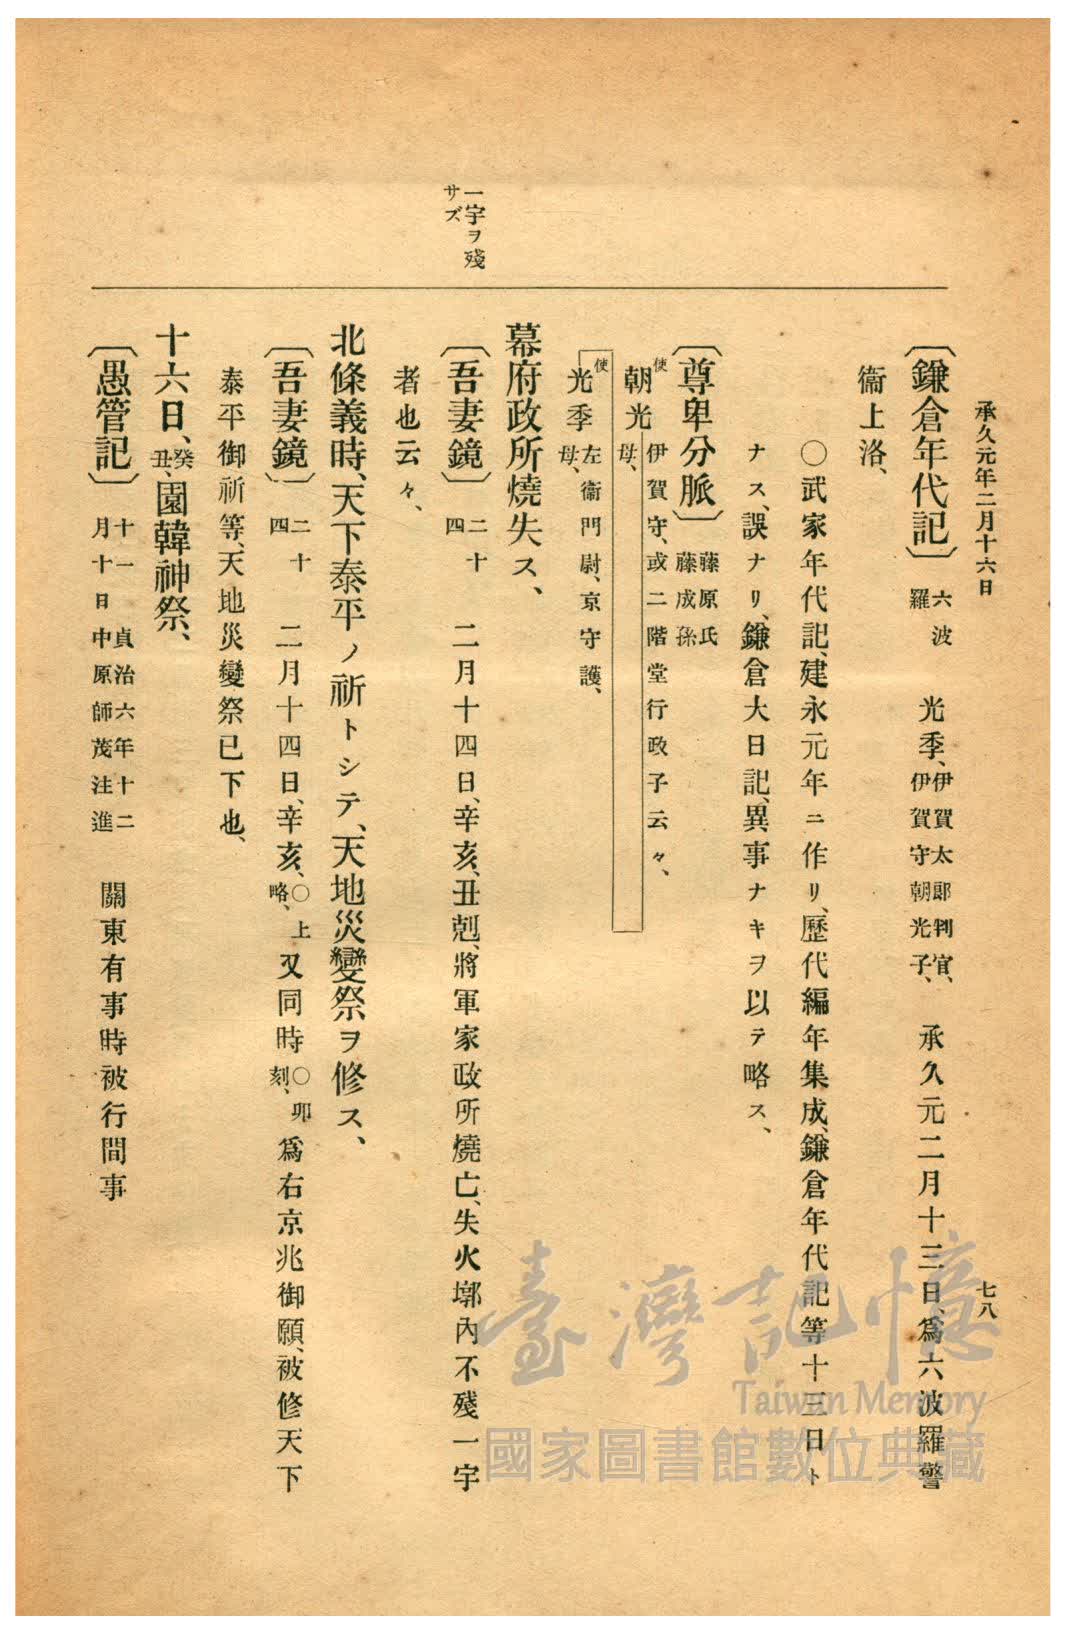 承久元年二月十六日
七八
一宇ヲ殘
サズ
〔鎌倉年代記〕六波羅 光季、伊賀太郎判官、伊賀守朝光子、 承久元二月十三日、爲六波羅警
衞上洛、
○武家年代記、建永元年ニ作リ、歷代編年集成、鎌倉年代記等十三日ト
ナス、誤ナリ、鎌倉大日記、異事ナキヲ以テ略ス、
〔尊卑分脈〕藤原氏藤成孫
使朝光 伊賀守、或二階堂行政子云々、母、
使光季 左衞門尉、京守護、母、
幕府政所燒失ス、
〔吾妻鏡〕二十四 二月十四日、辛亥、丑剋、將軍家政所燒亡、失火墎內不殘一宇
者也云々、
北條義時、天下泰平ノ祈トシテ、天地災變祭ヲ修ス、
〔吾妻鏡〕二十四 二月十四日、辛亥、○上略、又同時○卯刻、爲右京兆御願、被修天下
泰平御祈等、天地災變祭已下也、
十六日、癸丑、園韓神祭、
〔愚管記〕十一 貞治六年十二月十日中原師茂注進 關東有事時被行間事
臺灣記憶
Taiwan Memory
國家圖書館數位典藏